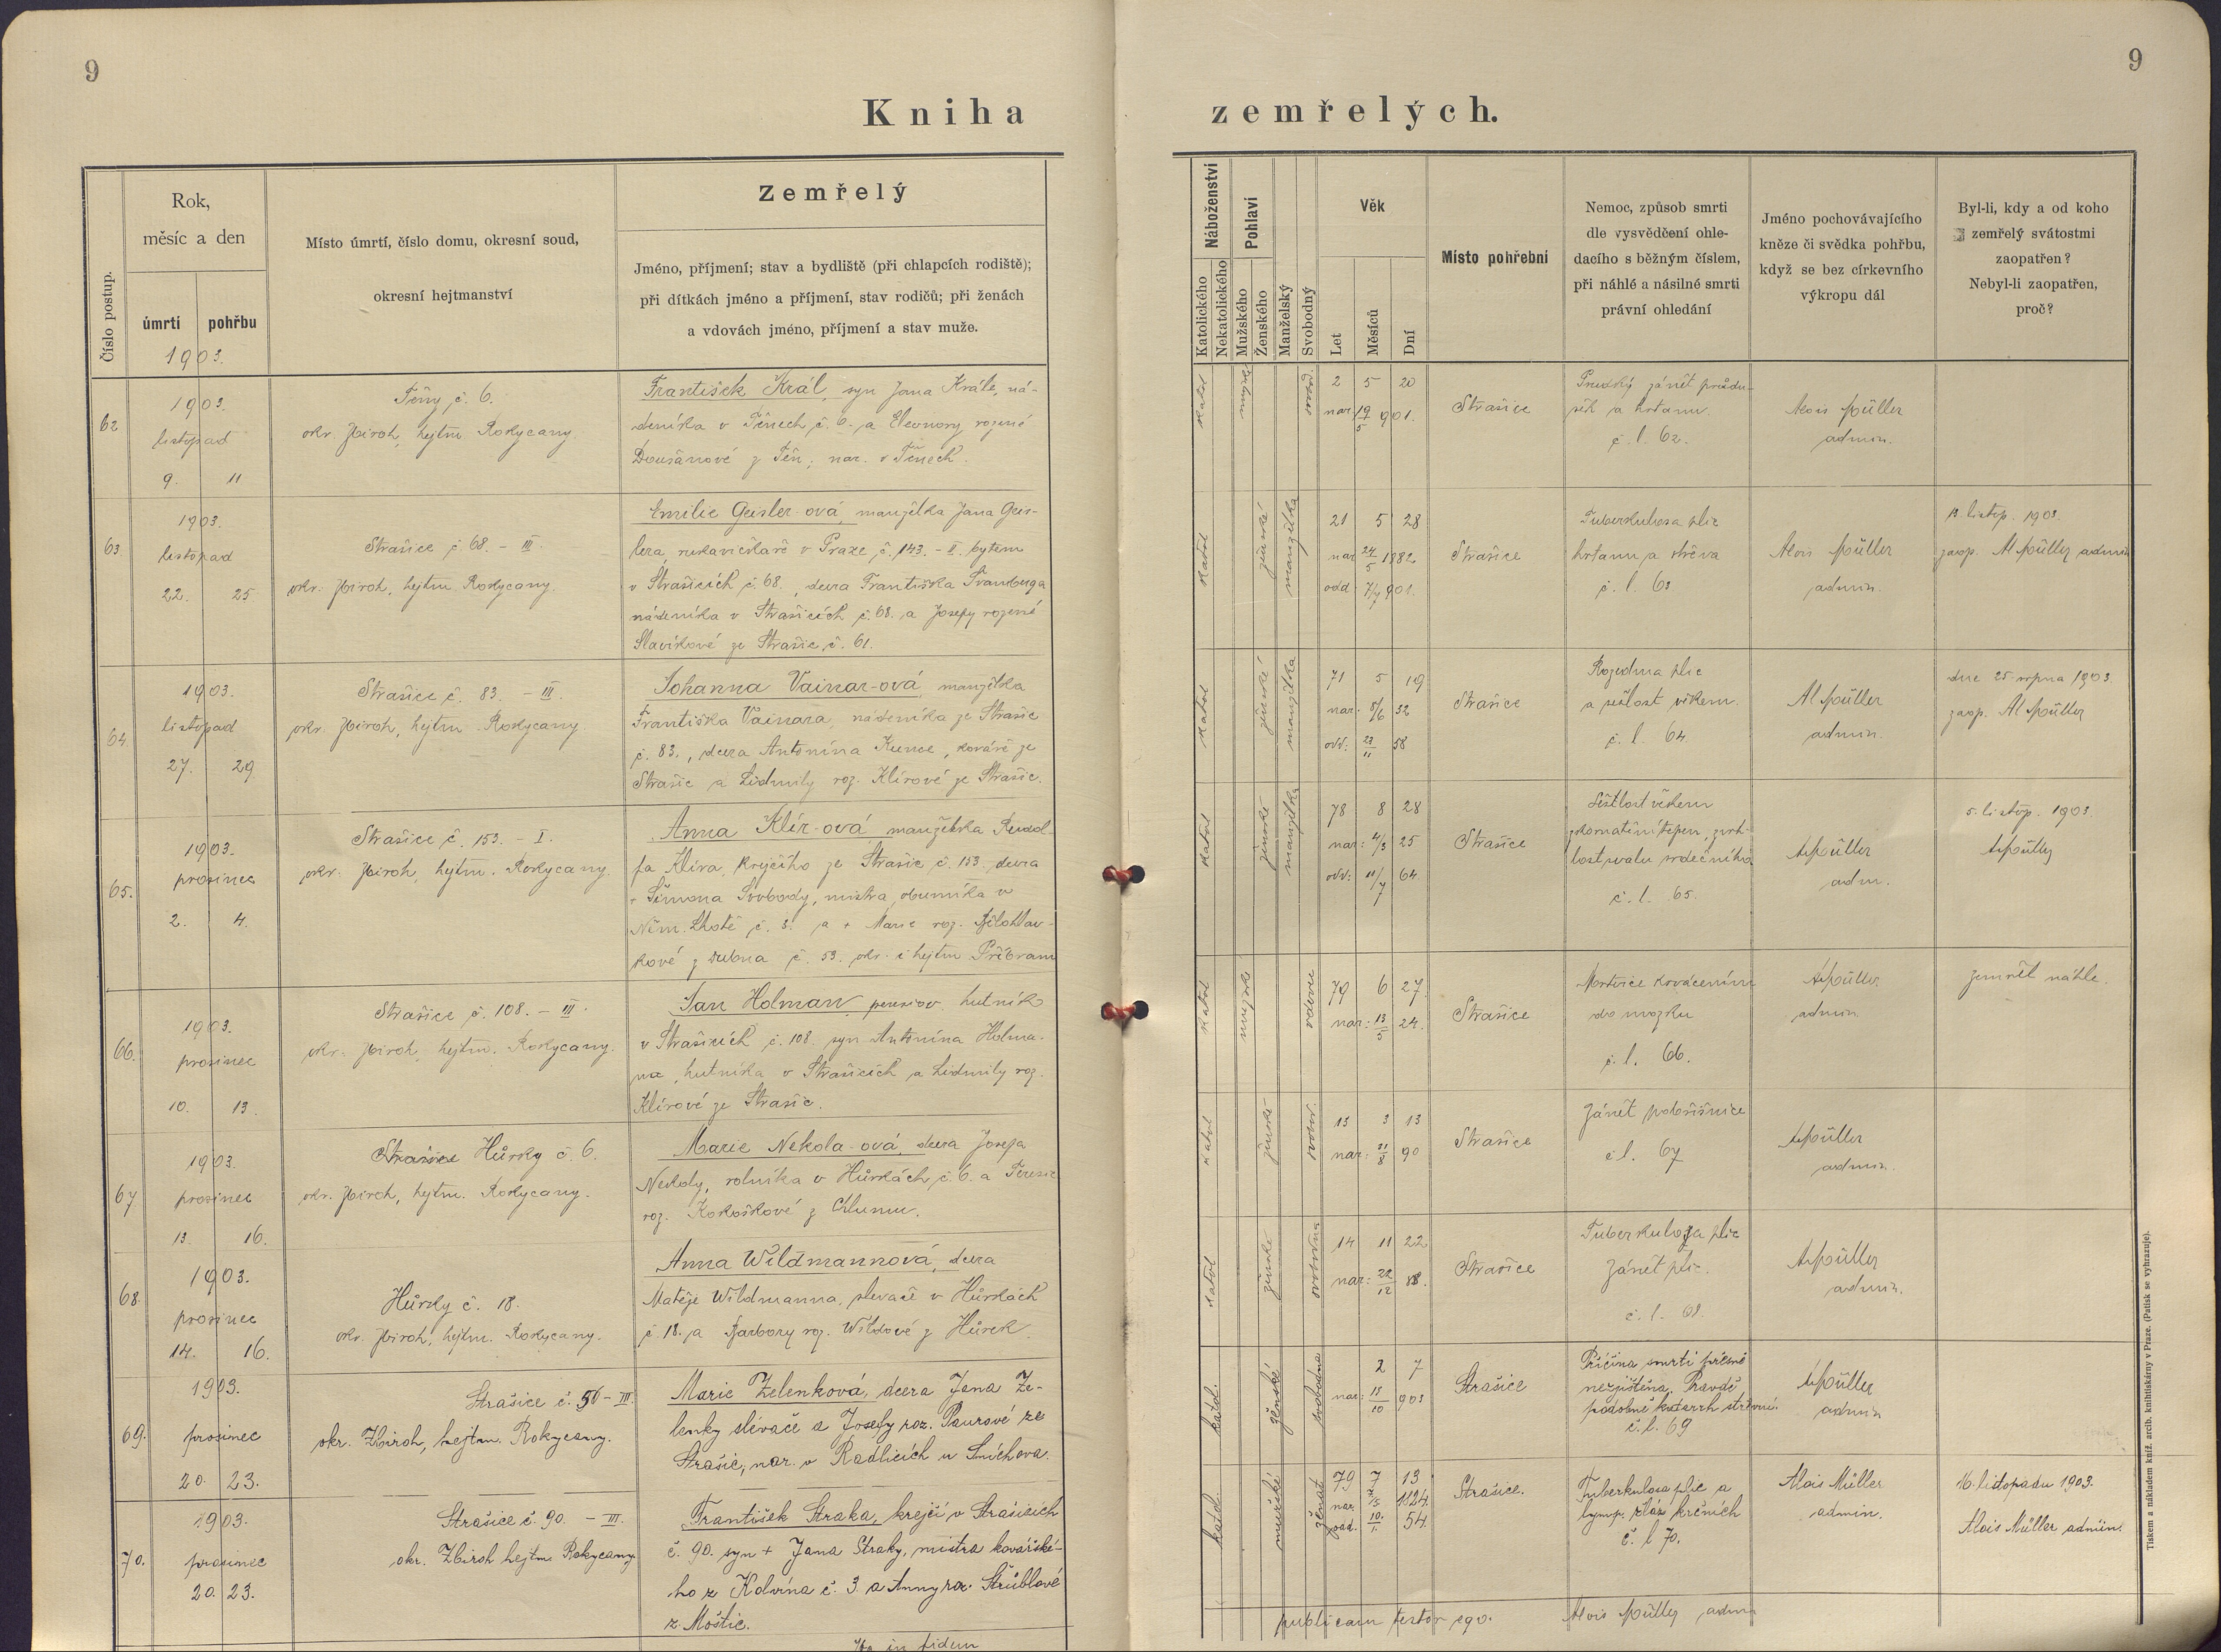 9
9
Kniha zemřelých.
Číslo postup.
Rok,
měsíc a den
úmrtí
pohřbu
1903.
Místo úmrtí, číslo domu, okresní soud,
okresní hejtmanství
Zemřelý
Jméno, příjmení; stav a bydliště (při chlapcích rodiště);
při dítkách jméno a příjmení, stav rodičů; při ženách
a vdovách jméno, příjmení a stav muže.
Náboženství
Katolického
Nekatolického
Pohlaví
Mužského
Ženského
Manželský
Svobodný
Věk
Let
Měsíců
Dní
Místo pohřební
Nemoc, způsob smrti
dle vysvědčení ohle-
dacího s běžným číslem,
při náhlé a násilné smrti
právní ohledání
Jméno pochovávajícího
kněze či svědka pohřbu,
když se bez církevního
výkropu dál
Byl-li, kdy a od koho
zemřelý svátostmi
zaopatřen?
Nebyl-li zaopatřen,
proč?
62
1903.
listopad
9. 11
Těny č. 6.
okr. Zbiroh, hejtm. Rokycany.
František Král, syn Jana Krále, ná-
deníka v Těnech č. 6. a Eleonory rozené
Doušanové z Těň, nar. v Těnech.
katol
mužské
svobod.
2 5 20
nar. 19/5 901.
Strašice
Prudký zánět průdu-
šek a hrtanu.
č. l. 62.
Alois Müller
admin.
63.
1903.
listopad
22. 25
Strašice č. 68. - III.
okr. Zbiroh, hejtm. Rokycany.
Emilie Geisler-ová, manželka Jana Geis-
lera, rukavičkáře v Praze, č. 143. - II. bytem
v Strašicích č. 68, dcera Františka Švamberga
nádeníka v Strašicích č. 68. a Josefy rozené
Slavíkové ze Strašic, č. 61.
katol
ženské
manželka
21 5 28
nar 24/5 1882
odd 7/7 901.
Strašice
Tuberkulosa plic
hrtanu a střeva
č. l. 63
Alois Müller
admin.
13. listop. 1903.
zaop. Al Müller admin
64.
1903.
listopad
27. 29.
Strašice č. 83. - III.
okr. Zbiroh, hejtm. Rokycany.
Johanna Vainar-ová, manželka
Františka Vainara, nádeníka ze Strašic
č. 83., dcera Antonína Kunce, kováře ze
Strašic a Lidmily roz. Klírové ze Strašic.
katol
ženské
manželka
71 5 19
nar. 8/6 32
odd: 23/11 58
Strašice
Rozedma plic
a sešlost věkem.
č. l. 64.
Al Müller
admin.
dne 25. srpna 1903.
zaop. Al Müller
65.
1903.
prosinec
2. 4.
Strašice č. 153. - I.
okr. Zbiroh, hejtm. Rokycany.
Anna Klír-ová manželka Rudol-
fa Klíra, krejčího ze Strašic č. 153. dcera
+ Šimona Svobody, mistra obuvníka v
Něm. Lhotě č. 3. a + Marie roz. Bělohlav-
kové z Dubna č. 53. okr. i hejtm Příbram
katol
ženské
manželka
78 8 28
nar: 4/3 25
odd: 11/7 64
Strašice
Sešlost věkem
zkornatění tepen, zvrh-
lost svalu srdečního
č. l. 65.
A Müller
adm.
5. listop. 1903
A Müller
66.
1903.
prosinec
10. 13.
Strašice č. 108. - III.
okr. Zbiroh, hejtm. Rokycany.
Jan Holman, pensiov. hutník
v Strašicích č. 108. syn Antonína Holma-
na, hutníka v Strašicích a Lidmily roz.
Klírové ze Strašic.
katol
mužské
vdovec
79 6 27.
nar: 13/5 24.
Strašice
Mrtvice krvácením
do mozku
č. l. 66.
A Müller
admin
zemřel náhle.
67
1903.
prosinec
13. 16.
Strašice Hůrky č. 6.
okr. Zbiroh, hejtm. Rokycany.
Marie Nekola-ová, dcera Josefa
Nekoly, rolníka v Hůrkách č. 6. a Terezie
roz. Kokoškové z Chlumu.
katol
ženské
svobod.
13 3 13
nar: 31/8 90
Strašice
Zánět pobřišnice
č l. 67
A Müller
admin.
68.
1903.
prosinec
14. 16.
Hůrky č. 18.
okr. Zbiroh, hejtm. Rokycany.
Anna Wildmannová, dcera
Matěje Wildmanna, slevače v Hůrkách
č. 18. a Barbory roz. Wildové z Hůrek.
katol
ženské
svobodna
14 11 22
nar: 22/12 88.
Strašice
Tuberkuloza plic
Zánět plic.
č. l. 68.
A Müller
admin.
69.
1903.
prosinec
20. 23.
Strašice č. 56 - III.
okr. Zbiroh, hejtm. Rokycany.
Marie Zelenková, dcera Jana Ze-
lenky slévače a Josefy roz. Paurové ze
Strašic, nar. v Radlicích u Smíchova.
katol.
ženské
svobodna
2 7
nar: 13/10 903
Strašice
Příčina smrti přesně
nezjištěna. Pravdě
podobně katarrh střevní.
č. l. 69
A Müller
admin
70.
1903.
prosinec
20. 23.
Strašice č. 90. - III.
okr. Zbiroh hejtm. Rokycany.
František Straka, krejčí v Strašicích
č. 90. syn + Jana Straky, mistra kovářské-
ho z Kolvína č. 3. a Anny roz. Štrúblové
z Moštic.
katol.
mužské
ženat
79 7 13
nar. 1824.
odd. 10/1. 54.
Strašice.
Tuberkulosa plic a
lymp. zláz krčních
č. l 70.
Alois Müller
admin.
16. listopadu 1903.
Alois Müller admin.
publicam testor ego.
Alois Müller adm
in fidem
Tiskem a nákladem kníž. arcib. knihtiskárny v Praze. (Patisk se vyhrazuje).